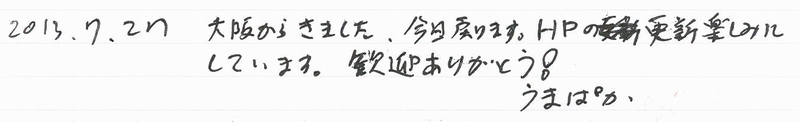 2013.7.27 大阪からきました、今日戻ります。HPの更新楽しみに
しています。歓迎ありがとう!
うまぱか、